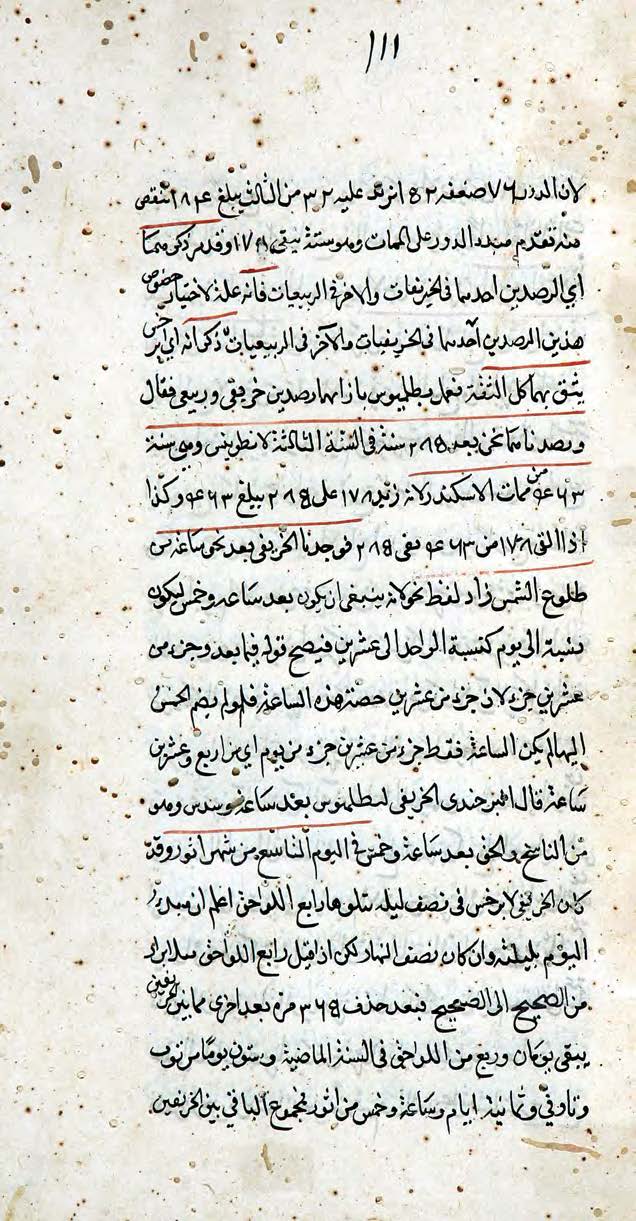 ١١١
لان الدور ٧٦ ضعفه ٨٢ ازيد عليه ٣٢ من الثالث يبلغ ١٨٤ تنقص
منه تقدم مبدء الدور على الممات وهو ستة يبقى ١٧٨ وقد مر ذكرهما
اي الرصدين احدهما في الخريفيات والاخر في الربيعيات فانه علة لاختيار خصوص
هذين الرصدين احدهما في الخريفيات والآخر في الربيعيات ذكر انه اي ابرخس
يثق بهما كل الثقة فعمل بطلميوس بازائهما رصدين خريفي وربيعي فقال
ورصدنا هما نحن بعد ٢٨٥ سنة في السنة الثالثة لانطونينس وهي سنة
٤٦٣ من ممات الاسكندر لانه زيد ١٧٨ على ٢٨٥ يبلغ ٤٦٣ وكذا
اذا القى ١٧٨ من ٤٦٣ بقى ٢٨٥ فوجدنا الخريفي بعد نحو ساعة من
طلوع الشمس زاد لفظ نحو لانه ينبغي ان يكون بعد ساعة وخمس ليكون
نسبته الى يوم كنسبة الواحد الى عشرين فيصح قوله فيما بعد وجزء من
عشرين جزء لان جزء من عشرين حصة هذه الساعة فلو لم يضم الخمس
اليها لم يكن الساعة فقط جزء من عشرين جزء من يوم اي من اربع وعشرين
ساعة قال الخجندي الخريفي لبطلميوس بعد ساعة وسدس وهو
من الناسخ والحق بعد ساعة وخمس في اليوم التاسع من شهر اثور وقد
كان الخريفي لابرخس في نصف ليلة يتلوها رابع اللواحق اعلم ان مبدء
اليوم بليلته وان كان نصف النهار لكن اذا قيل رابع اللواحق
من الصحيح الى الصحيح فبعد حذف ٣٦٥ مرة بعد اخرى مما بين الخريفين
يبقى يومان وربع من اللواحق في السنة الماضية وستون يوما من توت
وفاوفي وثمانية ايام وساعة وخمس من اثور فمجموع الباقي بين الخريفين